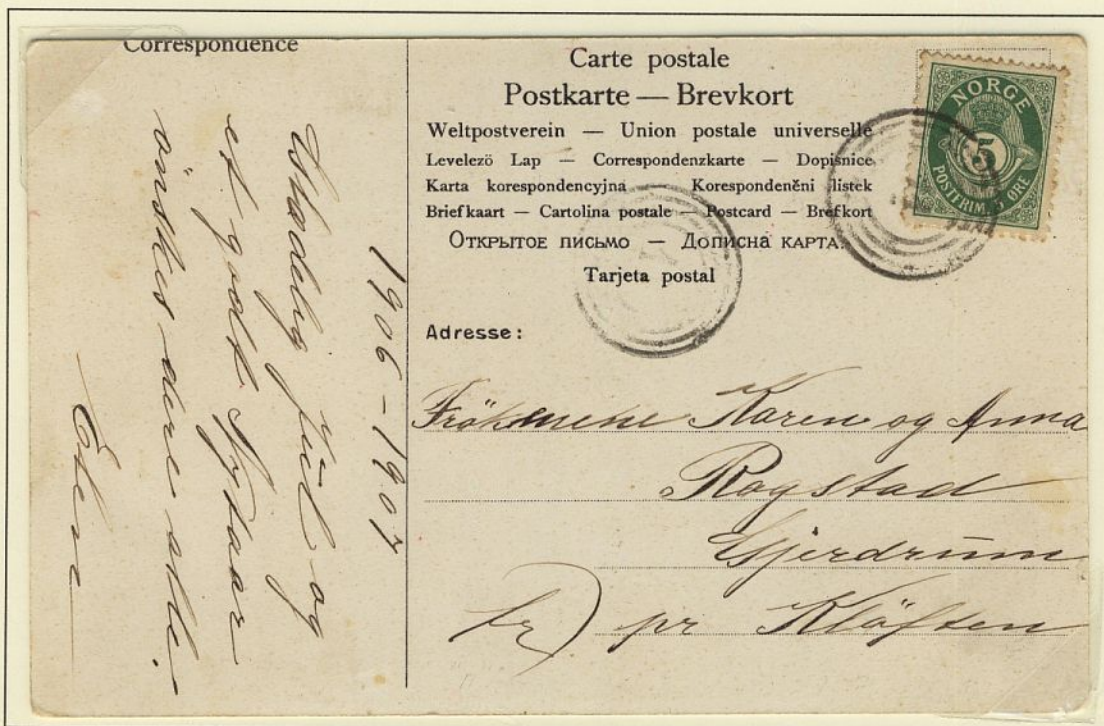 Correspondence
1906-1907
Glædelig Jul og
et godt Nytaar
önskes dere alle.
Carte postale
Postkarte — Brevkort
Weltpostverein — Union postale universelle
Levelező Lap — Correspondenzkarte — Dopisnice
Karta korespondencyjna Korespondenční listek
Briefkaart — Cartolina postale — Postcard — Brefkort
Открытое письмо — Дописна карта.
Tarjeta postal
NORGE
5
POSTFRIM. 5 ØRE
Adresse:
Frökenene Karen og Anna
Rogstad
Gjerdrum
fr) pr Kløften